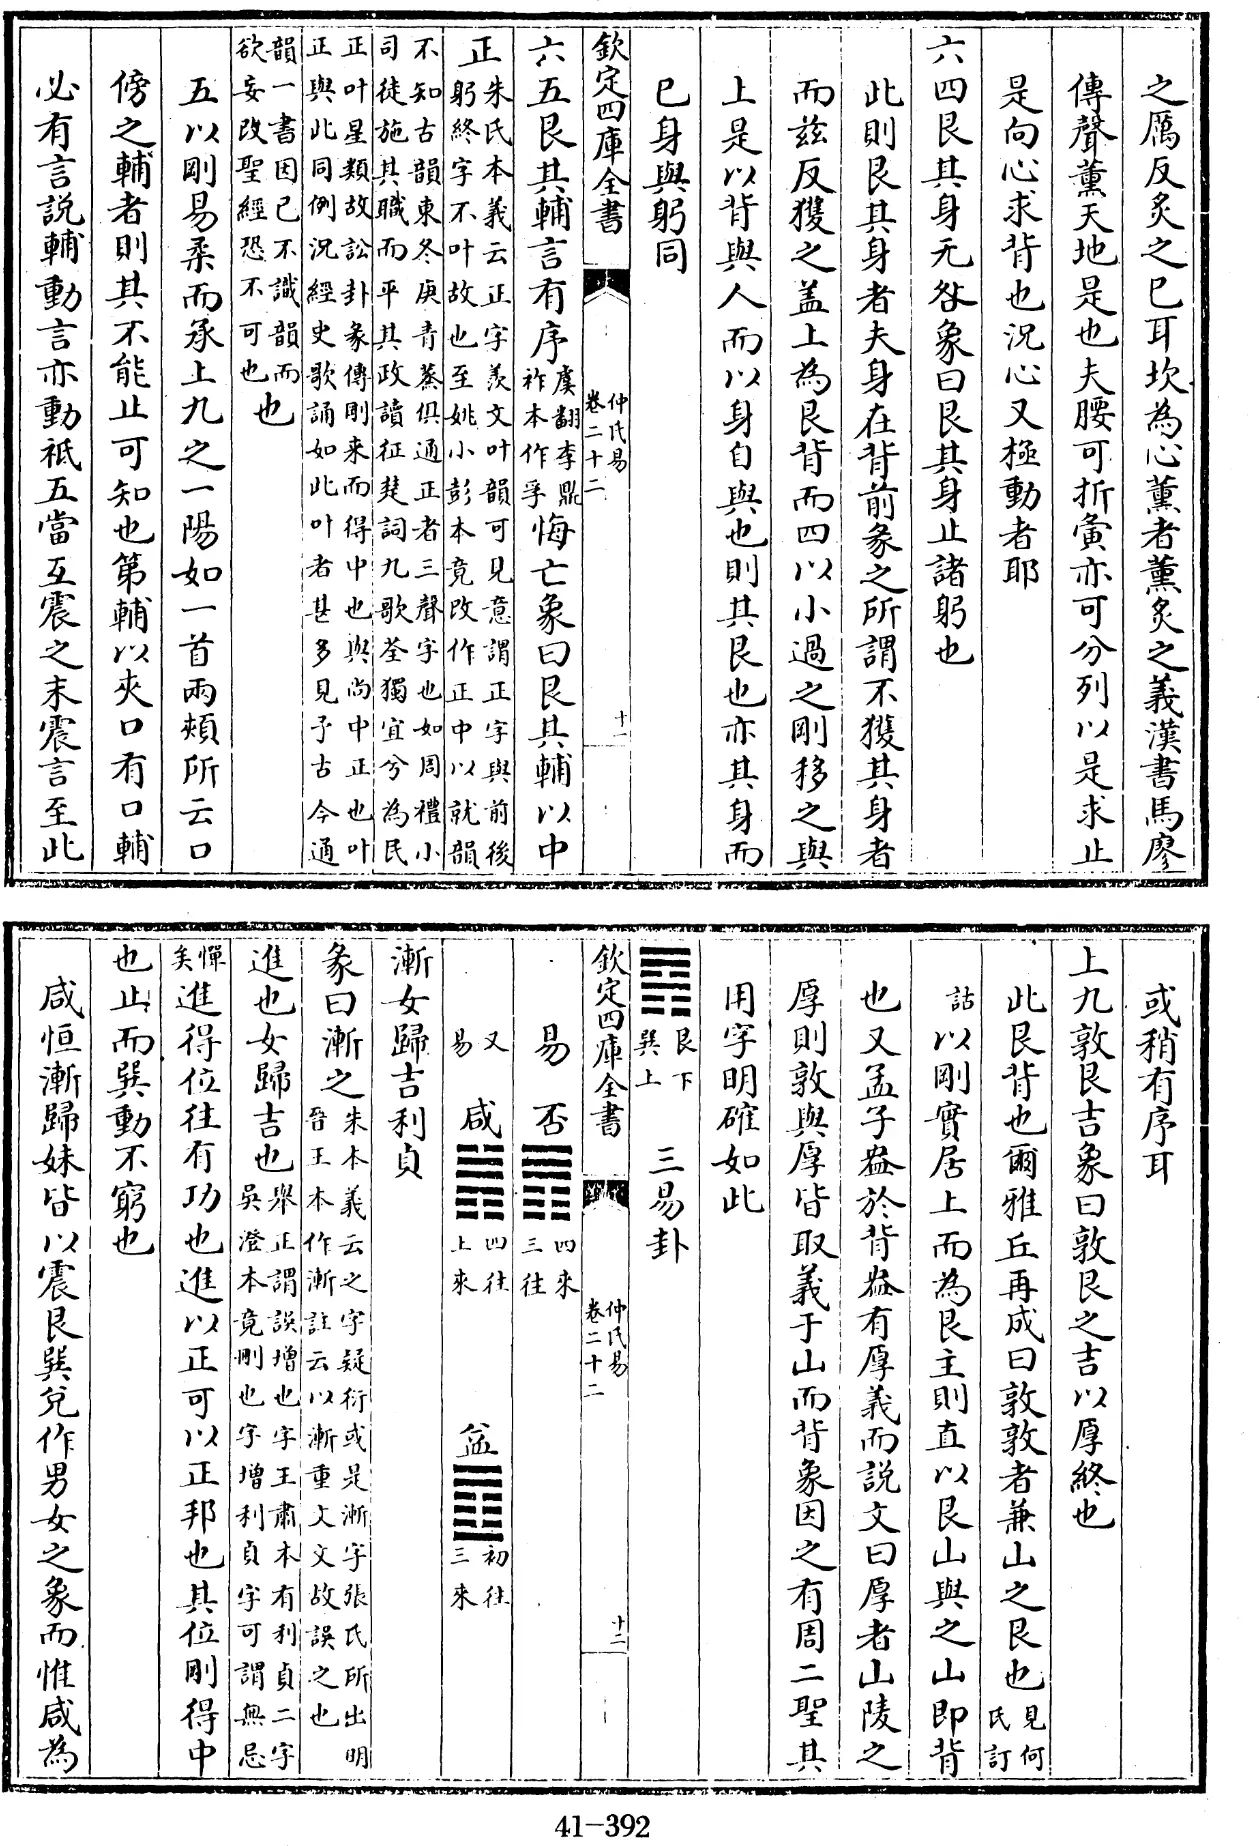 之厲反炙之已耳坎為心薰者薰炙之義漢書馬廖
傳聲薰天地是也夫腰可折夤亦可分列以是求止
是向心求背也況心又極動者耶
六四艮其身无咎象曰艮其身止諸躬也
此則艮其身者夫身在背前彖之所謂不獲其身者
而兹反獲之盖上為艮背而四以小過之剛移之與
上是以背與人而以身自與也則其艮也亦其身而
已身與躬同
欽定四庫全書
仲氏易
卷二十二
十一
六五艮其輔言有序虞翻李鼎祚本作孚悔亡象曰艮其輔以中
正朱氏本義云正字羨文叶韻可見意謂正字與前後
躬終字不叶故也至姚小彭本竟改作正中以就韻
不知古韻東冬庚青蒸俱通正者三聲字也如周禮小
司徒施其職而平其政讀征楚詞九歌荃獨宜兮為民
正叶星類故訟卦彖傳剛来而得中也與尚中正也叶
正與此同例況經史歌誦如此叶者甚多見予古今通
韻一書因已不識韻而
欲妄改聖經恐不可也也
五以剛易柔而承上九之一陽如一首兩頰所云口
傍之輔者則其不能止可知也第輔以夾口有口輔
必有言説輔動言亦動祗五當互震之末震言至此
或稍有序耳
上九敦艮吉象曰敦艮之吉以厚終也
此艮背也爾雅丘再成曰敦敦者兼山之艮也見何氏訂
詁以剛實居上而為艮主則直以艮山與之山即背
也又孟子盎於背盎有厚義而説文曰厚者山陵之
厚則敦與厚皆取義于山而背象因之有周二聖其
用字明確如此
艮下
巽上
三易卦
欽定四庫全書
仲氏易
卷二十二
十二
易 否 四來
三往
又易 咸 四往
上來 益 初往
三來
漸女歸吉利貞
彖曰漸之朱本義云之字疑衍或是漸字張氏所出明
晉王本作漸註云以漸重文文故誤之也
進也女歸吉也舉正謂誤增也字王肅本有利貞二字
吳澄本竟刪也字增利貞字可謂無忌
憚矣進得位往有功也進以正可以正邦也其位剛得中
也止而巽動不窮也
咸恒漸歸妹皆以震艮巽兌作男女之象而惟咸為
41-392